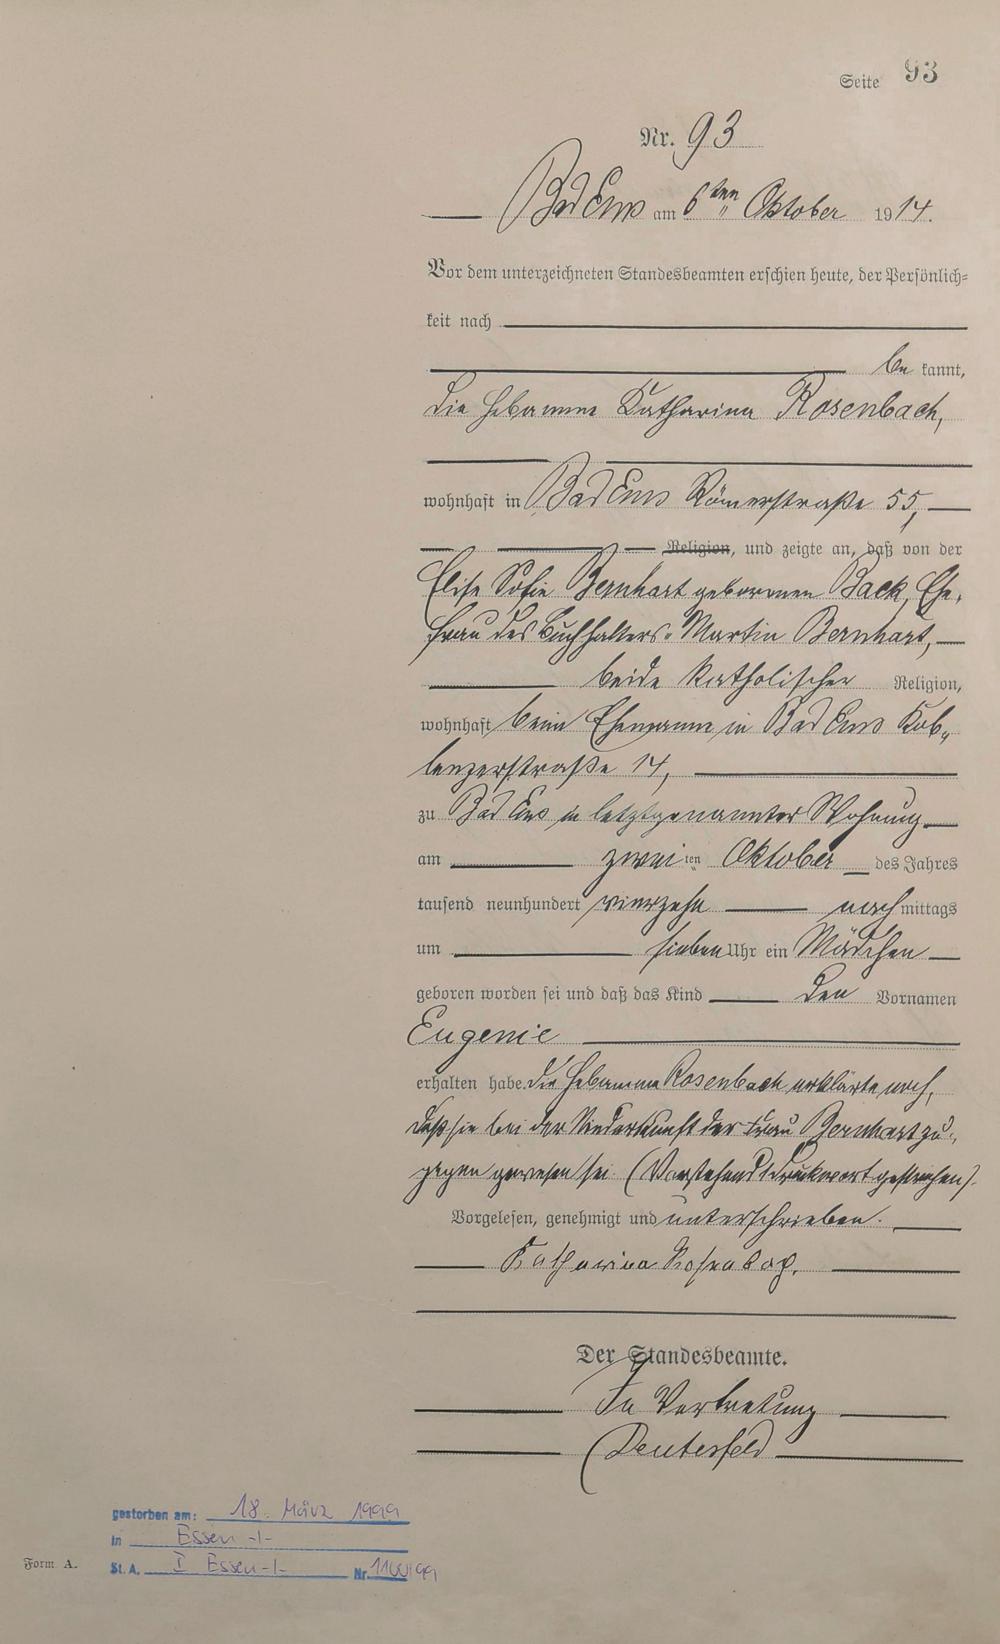 Seite 93
Nr. 93
Bad Ems am 6ten Oktober 1914.
Vor dem unterzeichneten Standesbeamten erschien heute, der Persönlich=
keit nach
be kannt,
die Hebamme Katharina Rosenbach,
wohnhaft in Bad Ems Römerstraße 55,
Religion, und zeigte an, daß von der
Elise Sofie Bernhart geborenen Back, Ehe-
frau des Buchhalters Martin Bernhart,
beide katholischer Religion,
wohnhaft beim Ehemann in Bad Ems Kob„
lenzerstraße 14,
zu Bad Ems in letztgenannter Wohnung
am zweiten Oktober des Jahres
tausend neunhundert vierzehn nachmittags
um sieben Uhr ein Mädchen
geboren worden sei und daß das Kind den Vornamen
Eugenie
erhalten habe. Die Hebamme Rosenbach erklärte noch,
daß sie bei der Niederkunft der Frau Bernhart zu„
gegen gewesen sei. (Vorstehend 1 Druckwort gestrichen).
Vorgelesen, genehmigt und unterschrieben.
Katharina Rosenbach.
Der Standesbeamte.
In Vertretung
gestorben am: 18. März 1999
in Essen -I-
Form A.
St.A. I Essen -I- Nr.